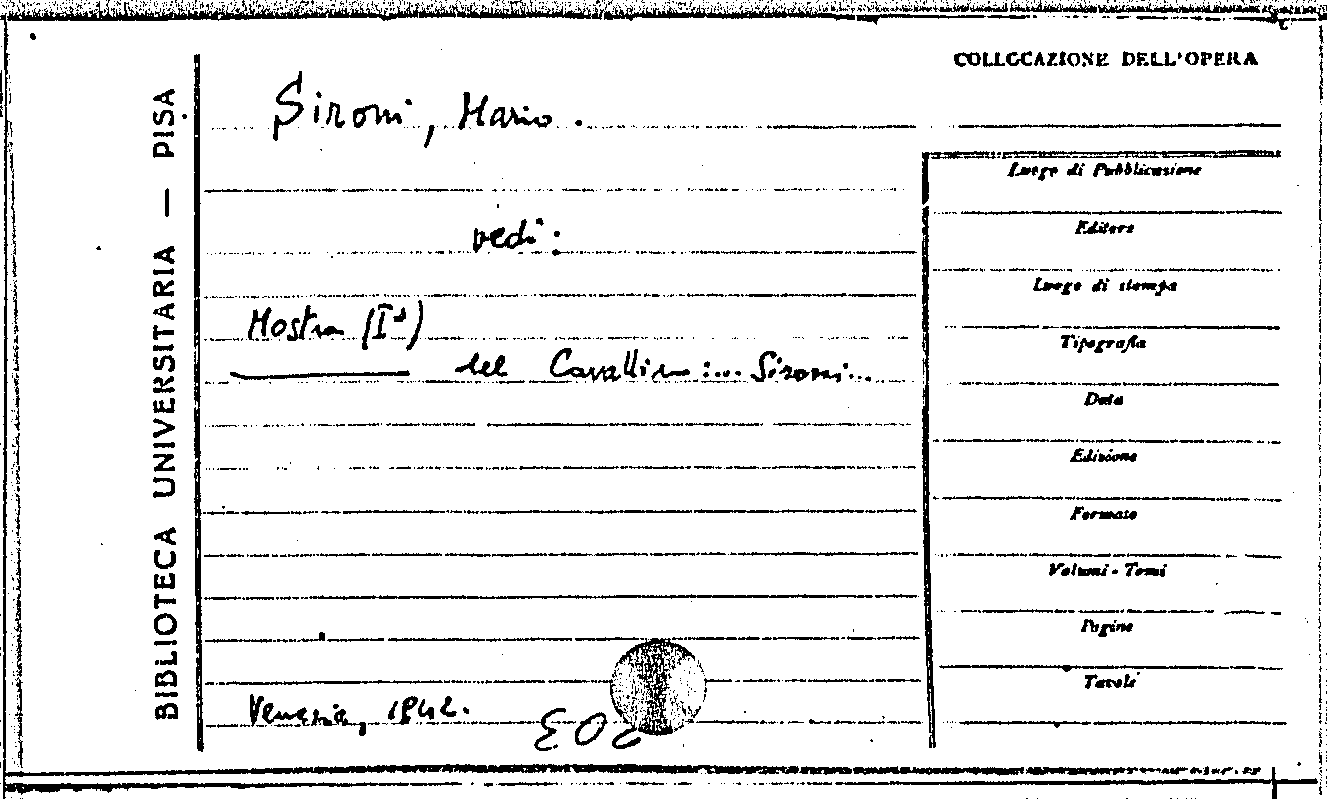 COLLOCAZIONE DELL'OPERA
BIBLIOTECA UNIVERSITARIA — PISA
Sironi, Mario.
vedi:
Mostra (Iª)
del Cavallino:... Sironi...
Venezia, 1942.
Luogo di Pubblicazione
Editore
Luogo di stampa
Tipografia
Data
Edizione
Formato
Volumi - Tomi
Pagine
Tavole